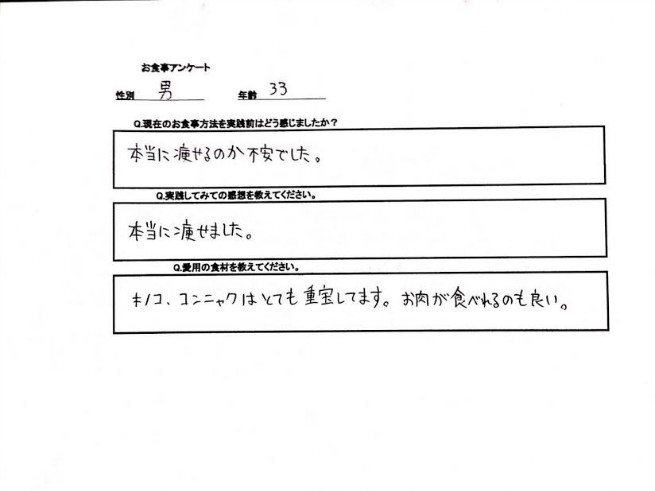 お食事アンケート
性別 男 年齢 33
Q.現在のお食事方法を実践前はどう感じましたか？
本当に痩せるのか不安でした。
Q.実践してみての感想を教えてください。
本当に痩せました。
Q.愛用の食材を教えてください。
キノコ、コンニャクはとても重宝してます。お肉が食べれるのも良い。